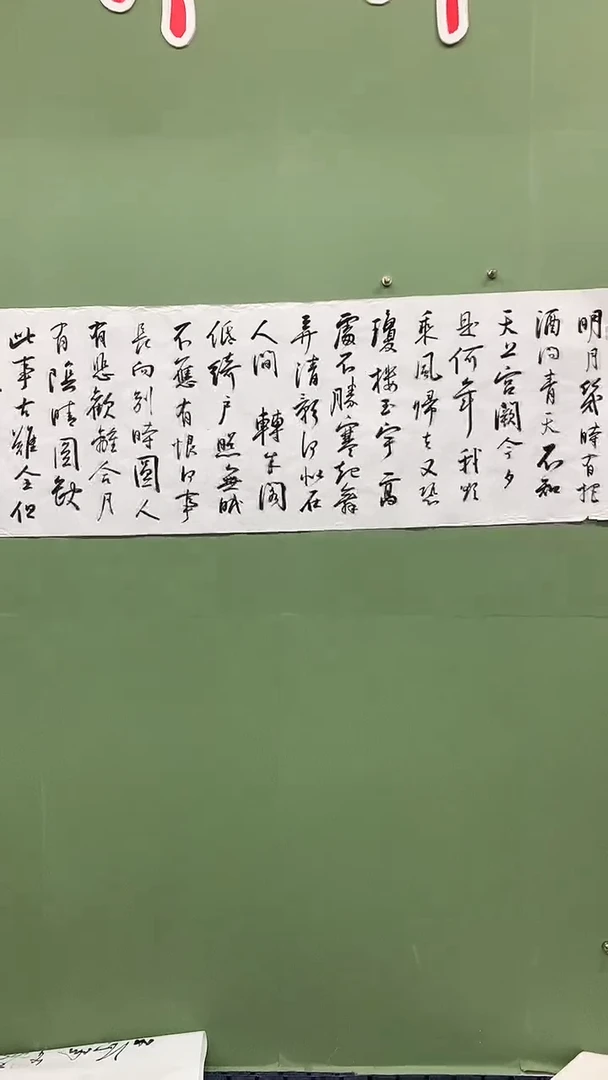 明月幾時有把
酒问青天不知
天上宫闕今夕
是何年我欲
乘風歸去又恐
瓊樓玉宇高
處不勝寒起舞
弄清影何似在
人間轉朱阁
低綺户照無眠
不應有恨何事
長向别時圓人
有悲歡離合月
有陰晴圓缺
此事古難全但